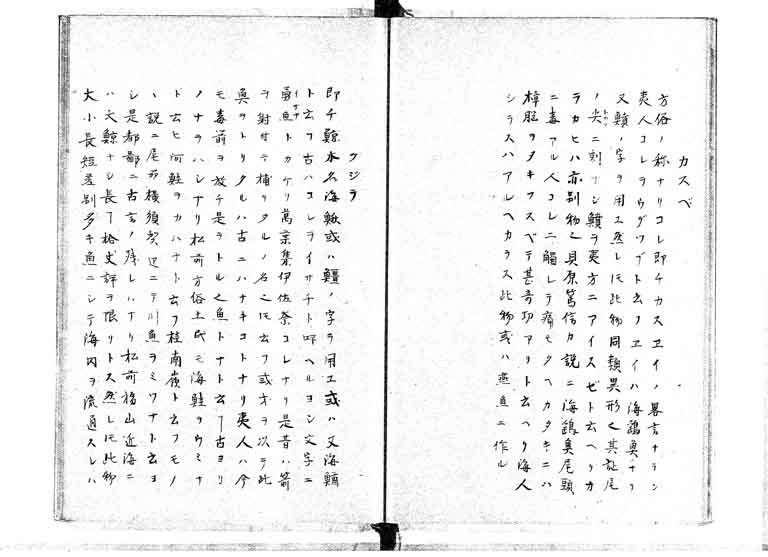 カスベ
方俗ノ称ナリコレ即チカスヱイノ畧言ナラン
夷人コレヲウグツブト云フヱイハ海鷂魚ナリ
又鱝ノ字ヲ用ユ然レ𪜈此物同類異形
ノ尖ニ刻ナシ鱝ヲ夷方ニアイスゼト云ヘリカ
ラカヒハ亦別物也貝原篤信カ説ニ海鷂魚尾頭
ニ毒アル人コレニ觸レテ痛モタヘカタキニハ
樟脳ヲタキフスベテ甚竒功アリト云ヘリ海人
シラスハアルヘカラス此物或ハ燕魚ニ作ル
クジラ
即チ鯨水名海鰍或ハ鱷ノ字ヲ用エ或ハ又海鰌
ト云フ古ハコレライサナト呼ヘルヨシ文字ニ
勇魚トカケリ萬葉集伊佐奈コレナリ是昔ハ箭
ヲ射付テ捕リタルノ名
魚ヲトリタルハ古ニハナキコトナリ夷人ハ今
モ毒箭ヲ放チ是ヲトル
ノナラハシナリ松前方俗土民モ海鮭ヲウミナ
ト云ヒ河鮭ヲカハナト云フ桂南嶺ト云フモノ
ヽ説ニ尾州横須賀辺ニテ川魚ヲミツナト云ヨ
シ是都鄙ニ古言ノ残レハナリ松前桧山近海ニ
ハ大鯨ナシ長十格丈許ヲ限リトス然レ𪜈此物
大小長短差別多キ魚ニシテ海内ヲ流通スレハ